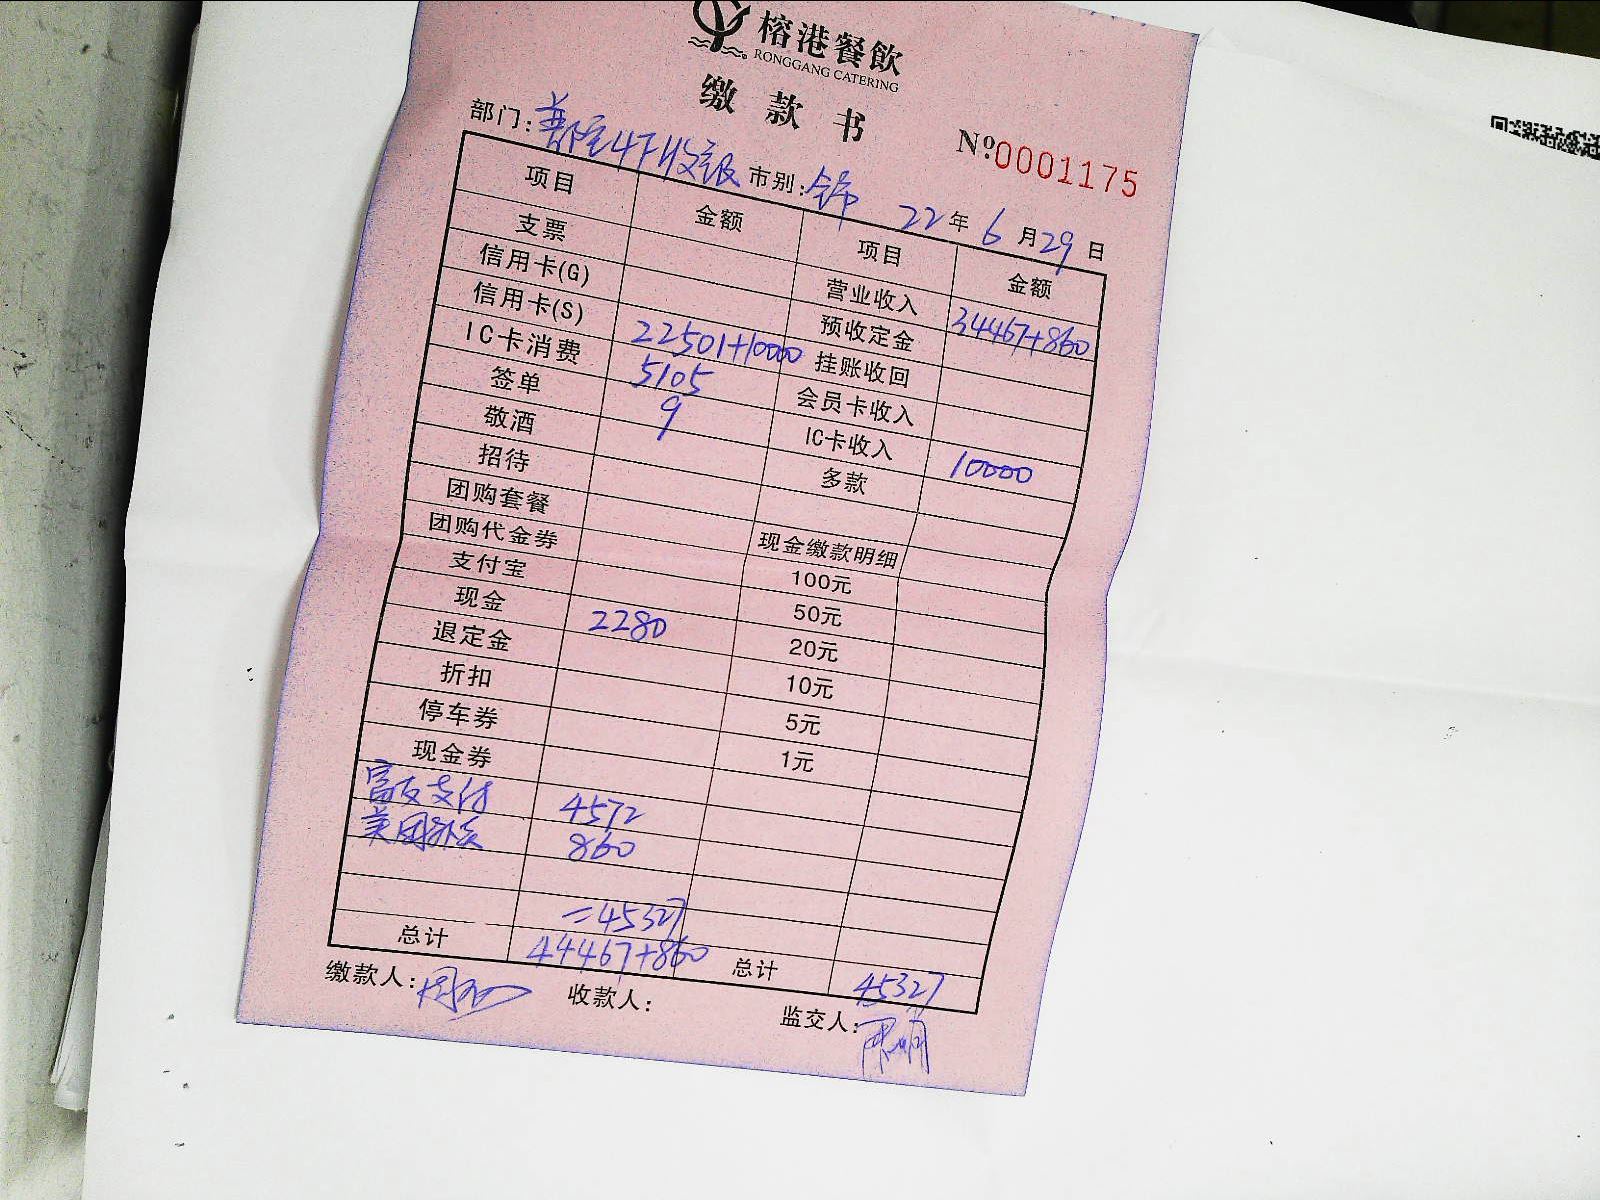 榕港餐飲
RONGGANG CATERING
缴款书
№0001175
部门: 4F收银 市别: 全市 22年6月29日
项目 金额 项目 金额
支票 营业收入 34467+860
信用卡(G) 预收定金
信用卡(S) 22501+10000 挂账收回
IC卡消费 5105 会员卡收入
签单 9 IC卡收入 10000
敬酒 多款
招待
团购套餐 现金缴款明细
团购代金券 100元
支付宝 50元
现金 2280 20元
退定金 10元
折扣 5元
停车券 1元
现金券
富友支付 4572
美团外卖 860
=45327
总计 44467+860 总计 45327
缴款人: 收款人: 监交人: